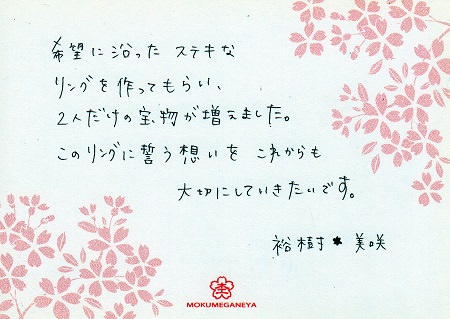 希望に沿った ステキな
リングを作ってもらい、
2人だけの宝物が増えました。
このリングに誓う想いを これからも
大切にしていきたいです。
裕樹 * 美咲
MOKUMEGANEYA